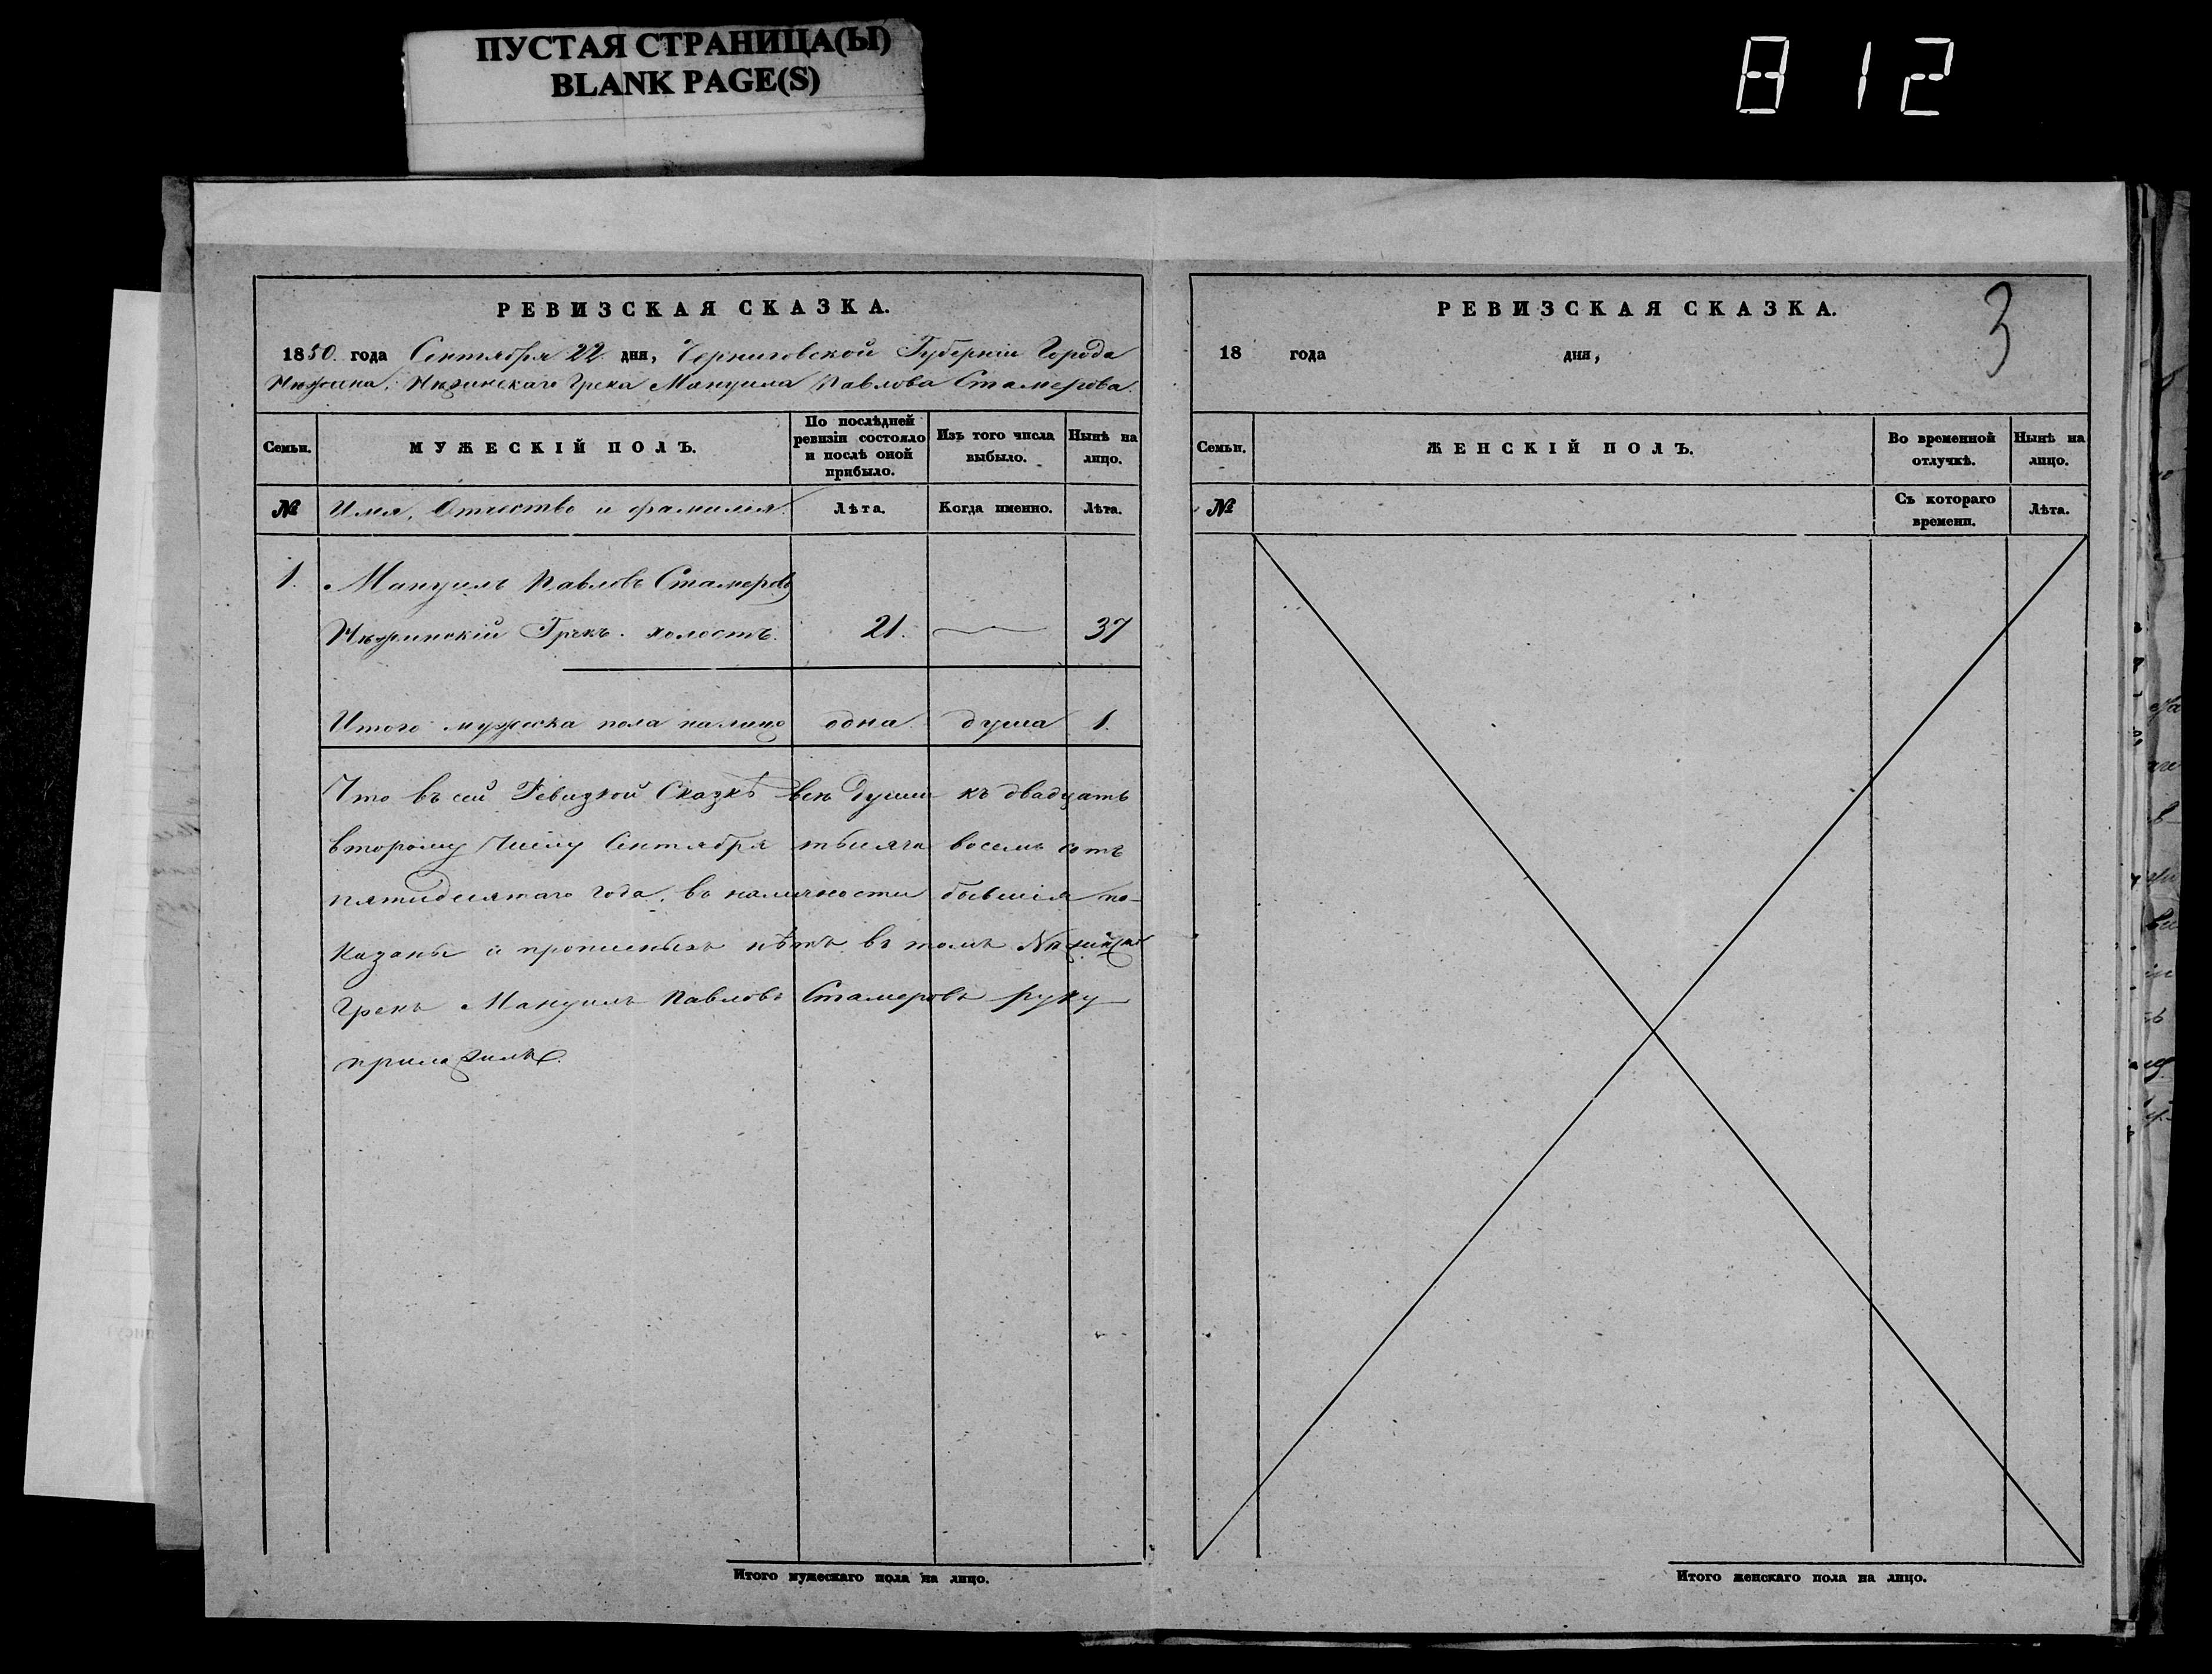 ПУСТАЯ СТРАНИЦА(Ы)
BLANK PAGE(S)
812
РЕВИЗСКАЯ СКАЗКА.
1850 года Сентября 22 дня, Черниговской Губерніи Города
Нѣжина, Нѣжинскаго Грека Мануила Павлова Стамерова.
Семьи.
МУЖЕСКІЙ ПОЛЪ.
По послѣдней ревизіи состояло и послѣ оной прибыло.
Изъ того числа выбыло.
Нынѣ на лицо.
№
Имя, Отчество и фамилія.
Лѣта.
Когда именно.
Лѣта.
1. Мануилъ Павловъ Стамеровъ
Нѣжинскій Грекъ. холостъ. 21. — 37
Итого мужеска пола налицо одна душа 1.
Что въ сей Ревизкой Сказкѣ всѣ души къ двадцать
второму Числу Сентября тысяча восемь сотъ
пятидесятаго года, въ наличности бывшія по-
казаны и прописныхъ нѣтъ въ томъ Нѣжинскій
Грекъ Мануилъ Павловъ Стамеровъ руку
приложилъ.
Итого мужескаго пола на лицо.
РЕВИЗСКАЯ СКАЗКА.
3
18 года дня,
Семьи.
ЖЕНСКІЙ ПОЛЪ.
Во временной отлучкѣ.
Нынѣ на лицо.
№
Съ котораго времени.
Лѣта.
Итого женскаго пола на лицо.